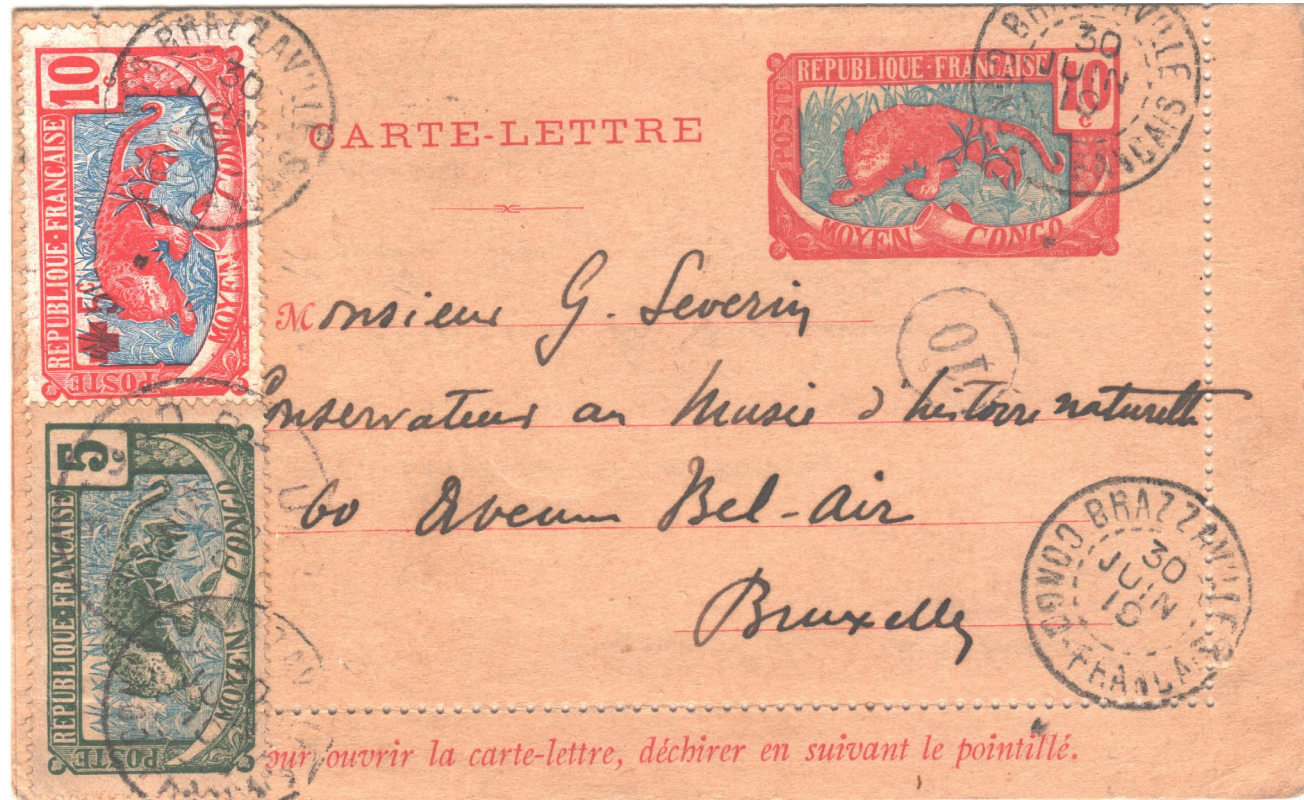 10
REPUBLIQUE · FRANCAISE
POSTE
MOYEN CONGO
5c
REPUBLIQUE · FRANCAISE
POSTE
MOYEN CONGO
5c
BRAZZAVILLE
30
CARTE-LETTRE
REPUBLIQUE · FRANCAISE
10c
POSTE
MOYEN CONGO
BRAZZAVILLE
30
JUIN
10
FRANCAIS
Monsieur G. Severin
10
Conservateur au Musée d'histoire naturelle
60 Avenue Bel-Air
Bruxelles
CONGO BRAZZAVILLE
30
JUIN
10
FRANCAIS
our ouvrir la carte-lettre, déchirer en suivant le pointillé.